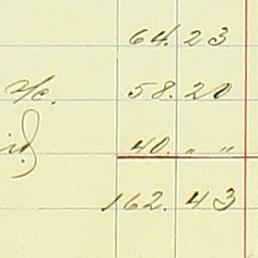 64.23
a/c. 58.20
40. „ „
162.43